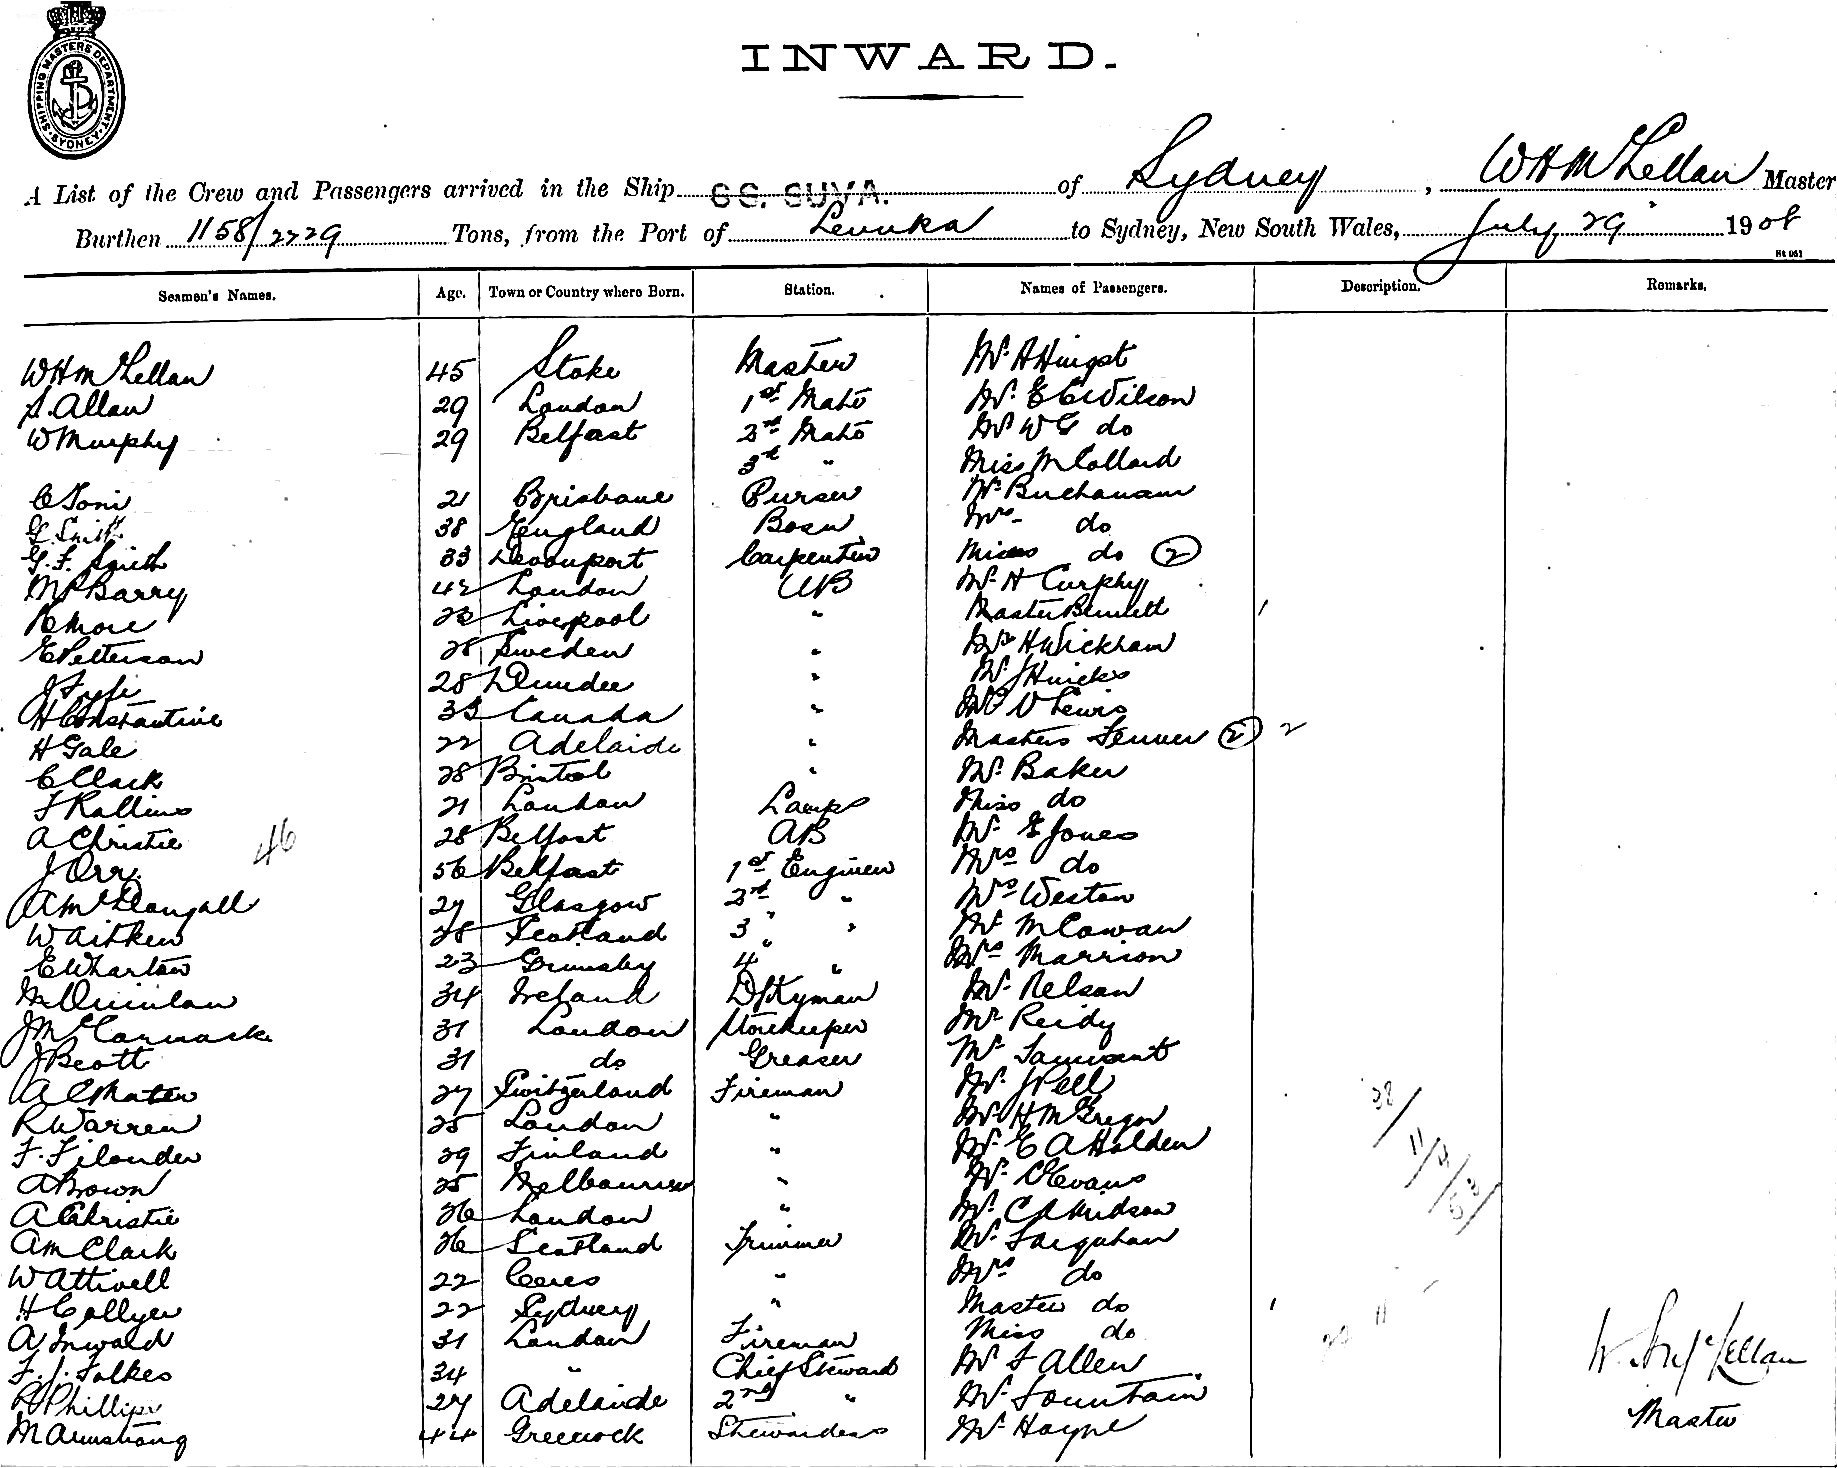 SHIPPING MASTERS DEPARTMENT
SYDNEY
INWARD.
A List of the Crew and Passengers arrived in the Ship SS. SUVA. of Sydney, W H McLellan Master
Burthen 1158/2229 Tons, from the Port of Levuka to Sydney, New South Wales, July 29 1908
Seamen's Names. Age. Town or Country where Born. Station. Names of Passengers. Description. Remarks.
W H McLellan 45 Stoke Master Mr A Hingst
S. Allan 29 London 1st Mate Mr. E C Wilson
W Murphy 29 Belfast 2nd Mate Mr W G do
3rd " Miss McCollard
C Toni 21 Brisbane Purser Mr Buchanan
G. Smith 38 England Bosn Mrs do
G. F. Smith 33 Devonport Carpenter Misses do 2
M P Barry 42 London AB Mr H Curphy
R More Liverpool " Master Bennett 1
E Petterson 28 Sweden " Mr H Wickham
J Fyfe 28 Dundee " Mr J Hincks
H Constantine 33 Canada " Mr V Lewis
H Gale 22 Adelaide " Masters Fenner 2 2
C Clark 28 Bristol " Mr. Baker
F Rollins 21 London Lamps Miss do
A Christie 28 Belfast AB Mr E Jones
46
J Orr 56 Belfast 1st Engineer Mrs do
A McDougall 27 Glasgow 2nd " Mrs Weston
W Aitken 28 Scotland 3 " " Mr McCowan
E Wharton 23 Grimsby 4 " " Mrs Marrion
M Quinlan 34 Ireland Dkyman Mr Nelson
J McCormack 31 London Storekeeper Mr Reidy
J Beott 31 do Greaser Mr
A C Mater 27 Switzerland Fireman Mr. J Pell
R Warren 25 London " Mr. H McGregor
F. Filander 29 Finland " Mr. E A Holden
A Brown 25 Melbourne " Mr. C Evans
A Christie 26 London " Mr. C A Hudson
A McClark 26 Scotland Trimmer Mr. Farquhar
W Attivell 22 Ceres " Mrs do
H Collyer 22 Sydney " Master do 1
A Inward 31 London Fireman Miss do
F. J. Folkes 34 " Chief Steward Mr F Allen
R Phillips 27 Adelaide 2nd " Mr. Fountain
M Armstrong 44 Greenock Stewardess Mr Hayne
W. H. McLellan
Master